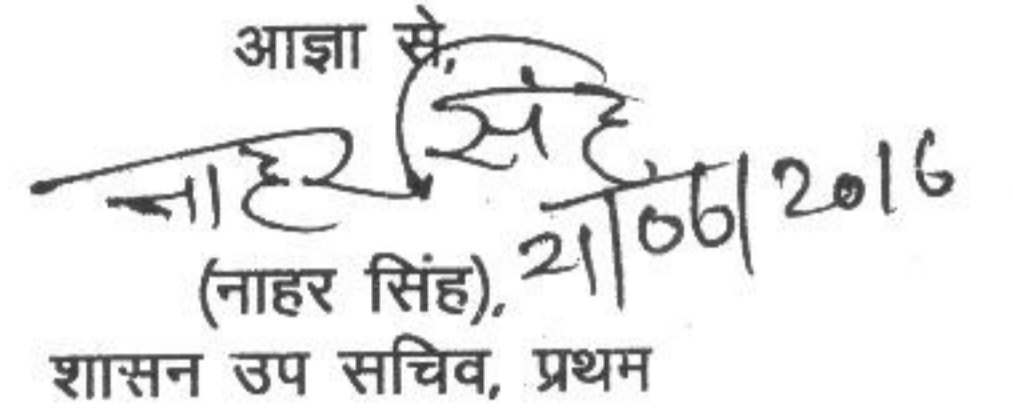 आज्ञा से,
नाहर सिंह
21/06/2016
(नाहर सिंह),
शासन उप सचिव, प्रथम